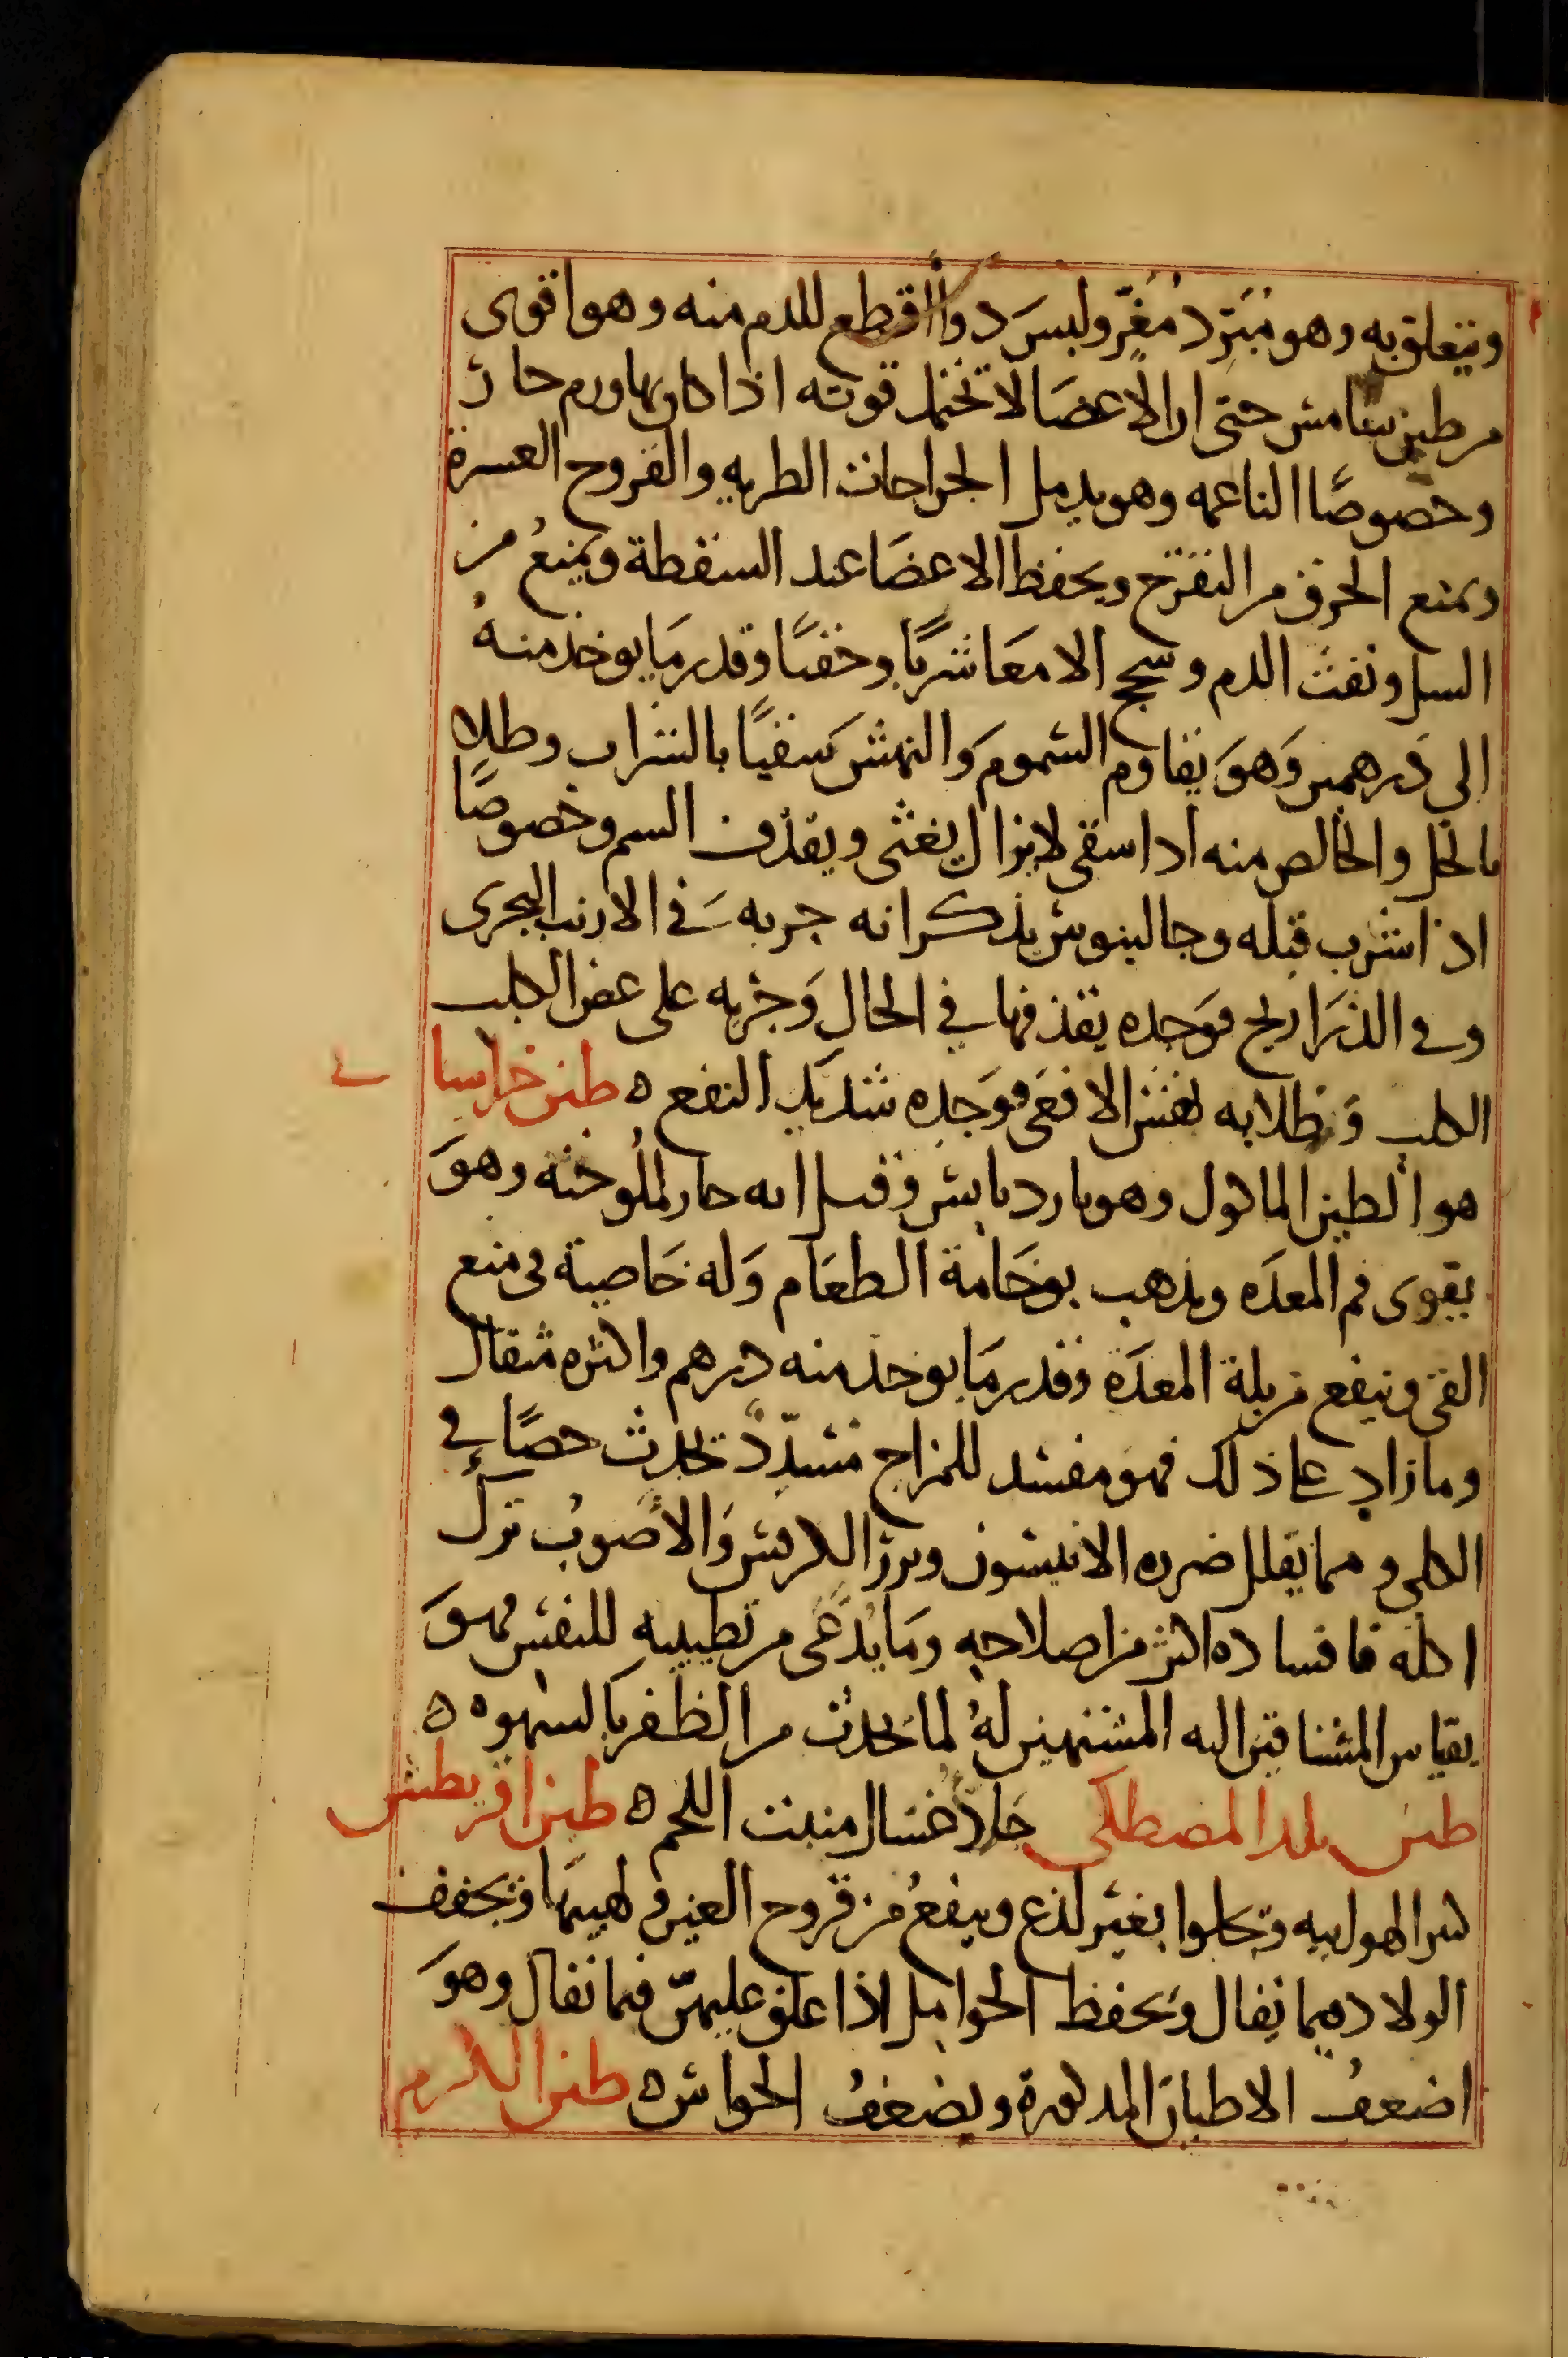 ويتعلق به وهو مُبَرِّد مُغَرٍّ وليس دواً اقطع للدم منه وهو اقوى
من طين سامس حتى ان الاعضا لا تحتمل قوته اذا كان بها ورم حار
وخصوصًا الناعمه وهو يدمل الجراحات الطريه والقروح العسرة
ويمنع الحرق من التقرح ويحفظ الاعضا عند السقطة ويمنعُ من
السل ونفث الدم وسحج الامعا شربًا وحقنًا وقدر ما يوخذ منهُ
الى درهمين وَهوَ يقاوم السموم وَالنهش سقيًا بالشراب وطلاه
بالخل والخالص منه اذا سقى لا يزال يغثى ويقذف السم وخصوصًا
اذا شرب قبله وجالينوس يذكر انه جربه في الارنب البحرى
وفي الذراريح فوَجده يقذفها في الحال وَجربه على عض الكلب
الكلب وَطلا به نهش الافعَى فوَجده شديد النفع ه طين خراسا نى
هو الطين الماكول وهو بارد يابس وقيل انه حار لملُوحته وهوَ
يقوى فم المعدَه ويذهب بوخَامة الطعَام وَله خَاصية في منع
القى وينفع من بلة المعدَة وقدر مَا يوخذ منه درهم واكثره مثقال
وما زاد على ذلك فهو مفسد للمزاج مُسدِّدٌ يحدث حصًا في
الكلى ومما يقلل ضرره الانيسون وبزر الكرفس وَالأصوبُ تركُ
اكله فافساده اكثر من اصلاحه ومَا يُدَّعَى من تطييبه للنفس فهوَ
بقياس المشتاقين اليه المشتهين لهُ لما يحدث من الظفر بالشهوه ه
طين بلد المصطكى جَلاّ غسال منبت اللحم ه طين اقريطش
كثير الهوائيه ويجلوا بغير لذع وينفعُ من قروح العين ولهيبها ويجفف
الولاده فيما يقال وَيحفظ الحوامل اذا علق عليهنّ فيما يقال وهوَ
اضعفُ الاطيان المذكورة ويضعفُ الحواس ه طين الكرم